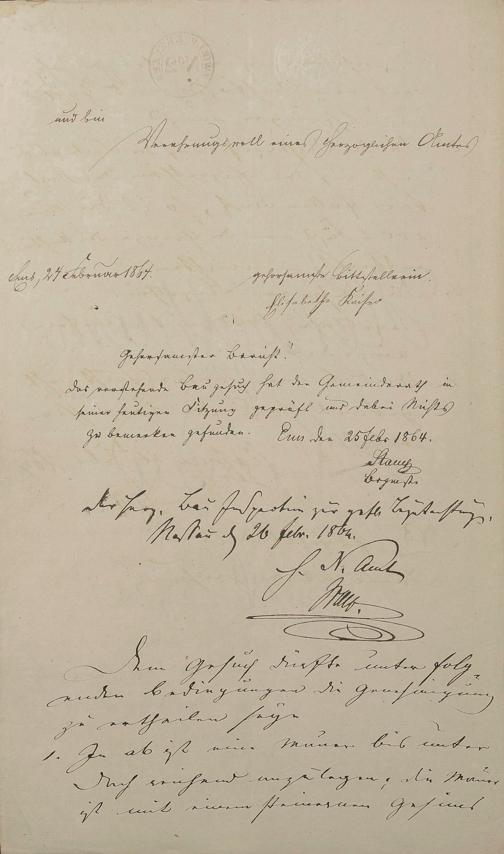 und bin
Verehrungsvoll eines Herzoglichen Amtes
Ems, 24 Februar 1864.
gehorsamste Bittstellerin.
Elisabethe Kaiser
Gehorsamster Bericht!
Das vorstehende Baugesuch hat der Gemeinderath in
seiner heutigen Sitzung geprüft und dabei Nichts
zu bemerken gefunden. Ems den 25 Febr 1864.
Der Herz. Bau Inspection zur gefl.
Nassau d 26 Febr. 1864.
H. N. Amt
Dem Gesuch dürfte unter folg-
enden Bedingungen die Genehmigung
zu ertheilen seyn
1. In ab ist eine Mauer bis unter
Dach reichend anzulegen, die Mauer
ist mit einem steinernen Gesims